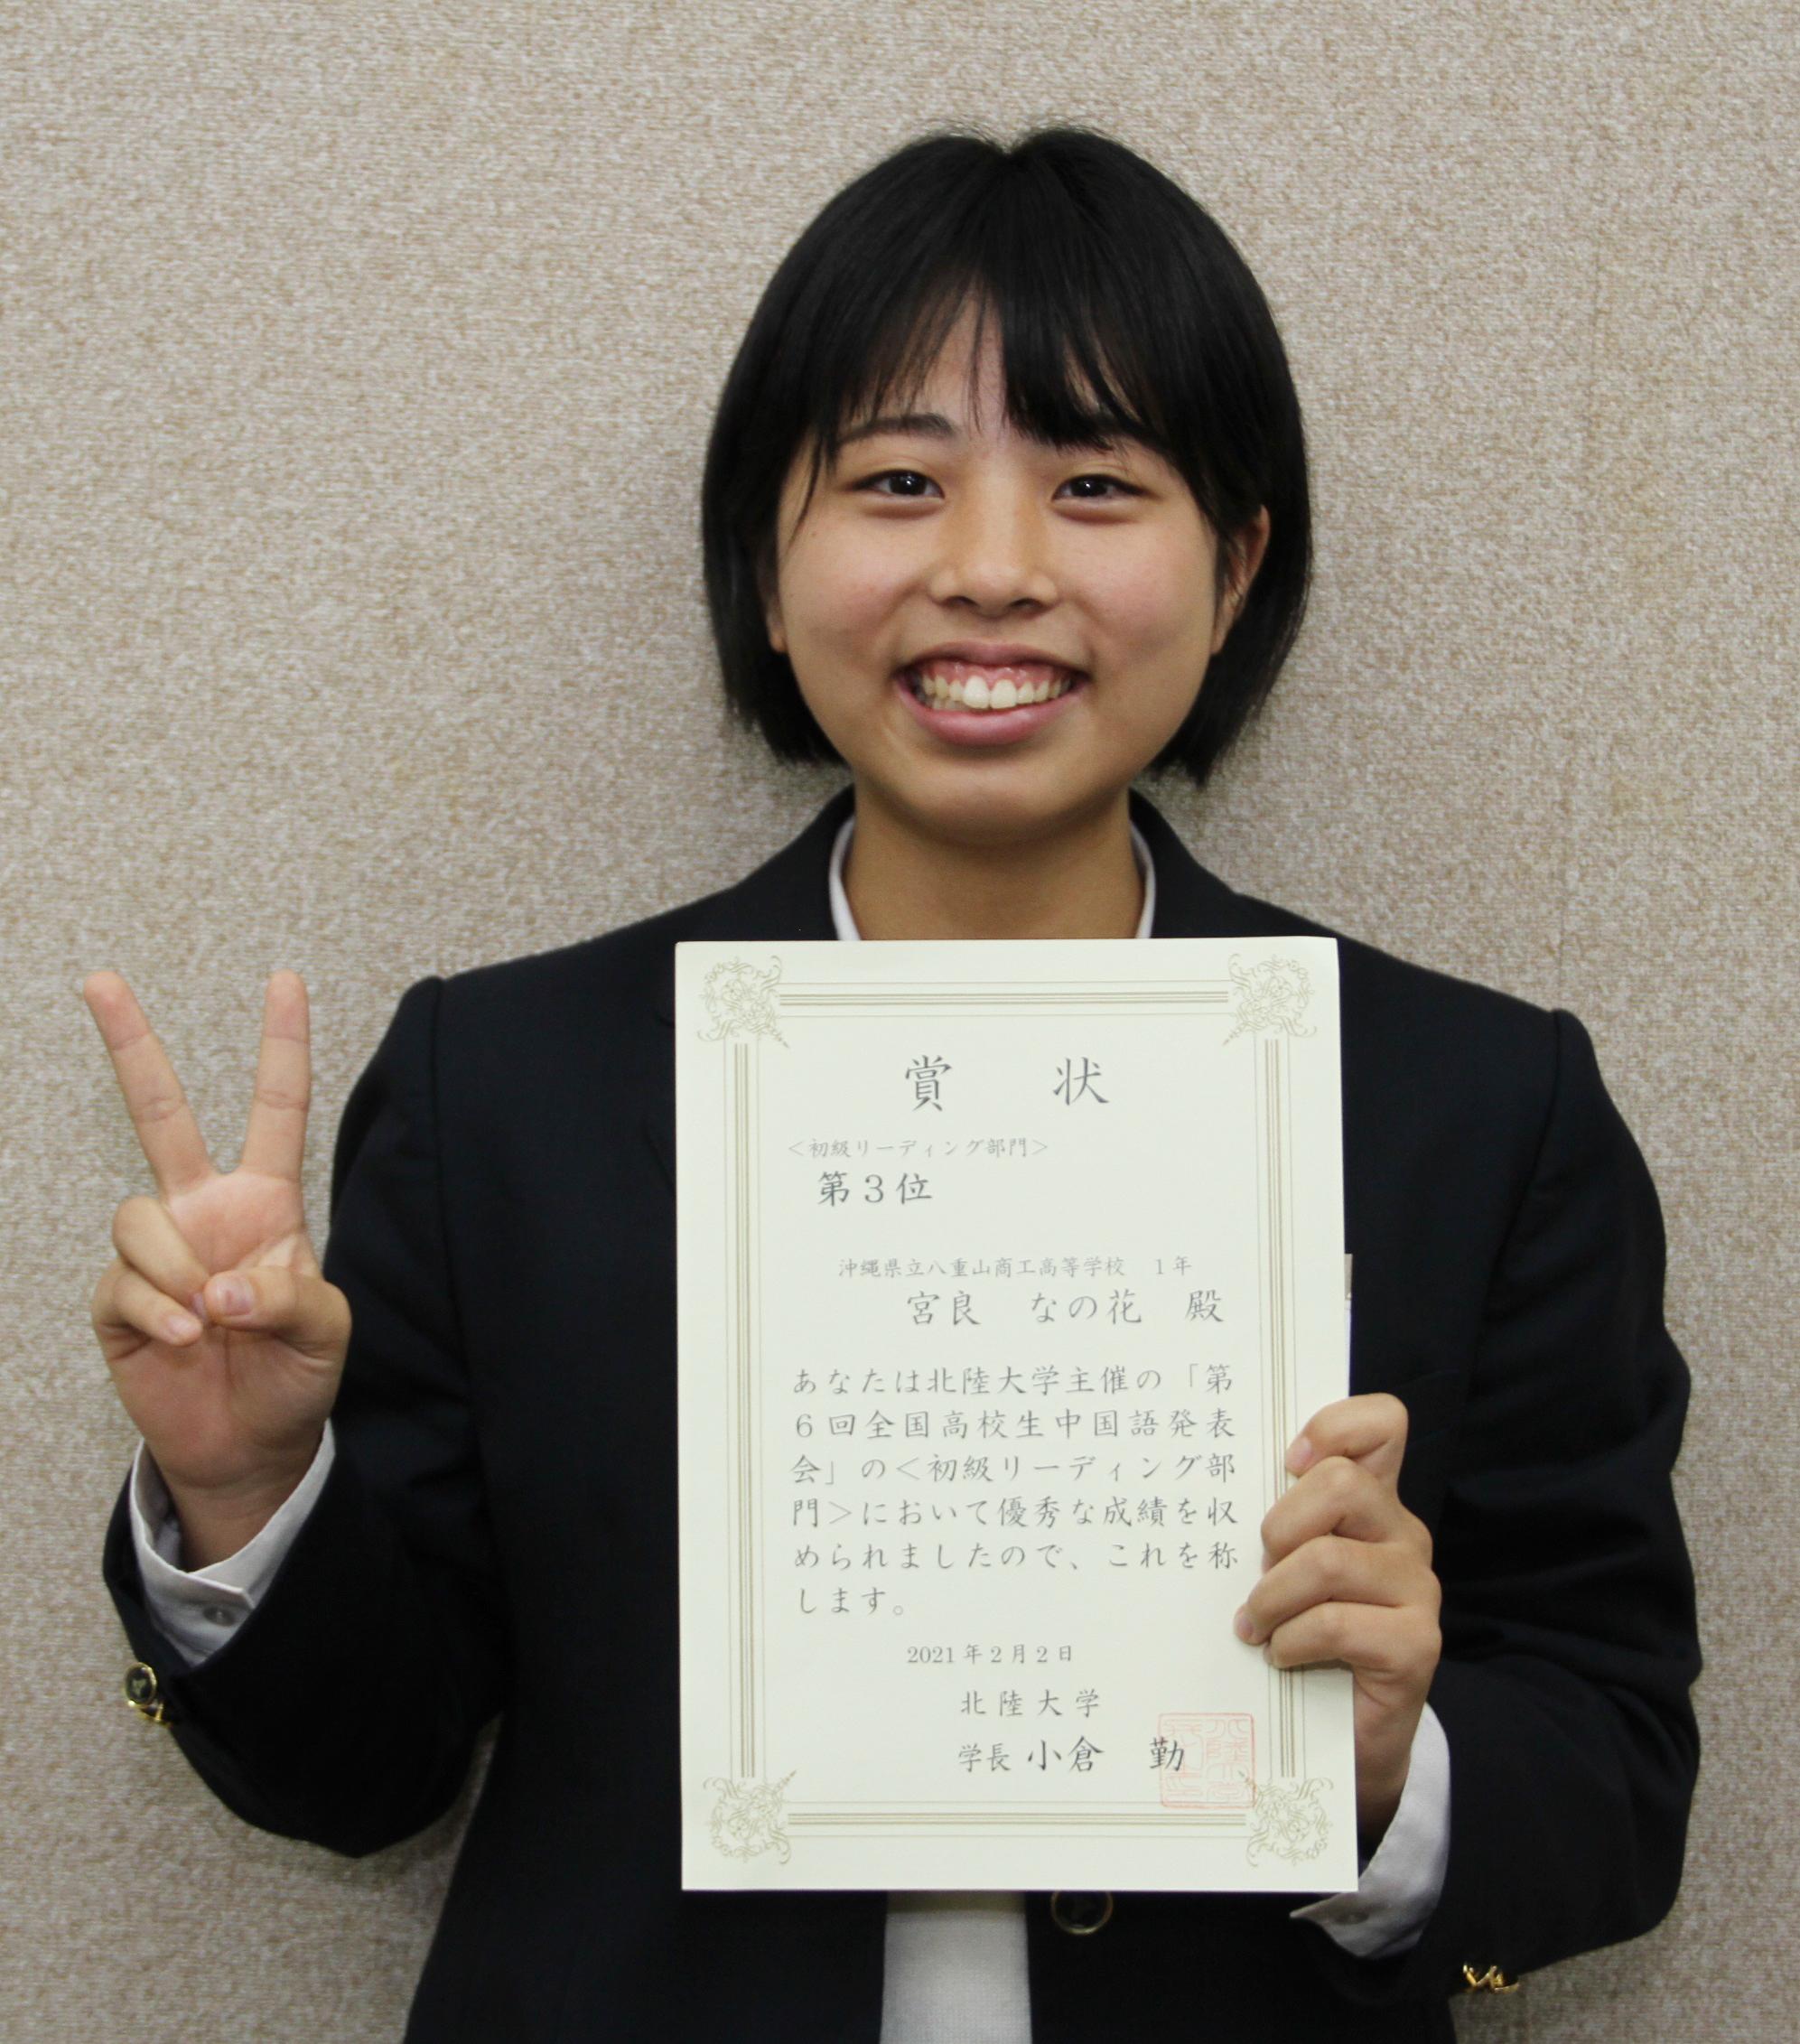 賞 状
＜初級リーディング部門＞
第３位
沖縄県立八重山商工高等学校 １年
宮良 なの花 殿
あなたは北陸大学主催の「第
６回全国高校生中国語発表
会」の＜初級リーディング部
門＞において優秀な成績を収
められましたので、これを称
します。
2021年２月２日
北陸大学
学長 小倉 勤